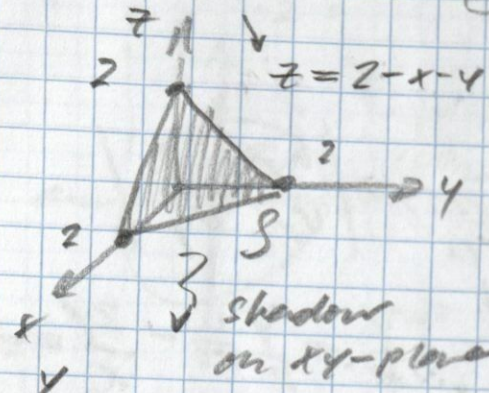 z
2
z = 2-x-y
2
y
2
S
x
shadow
on xy-plane